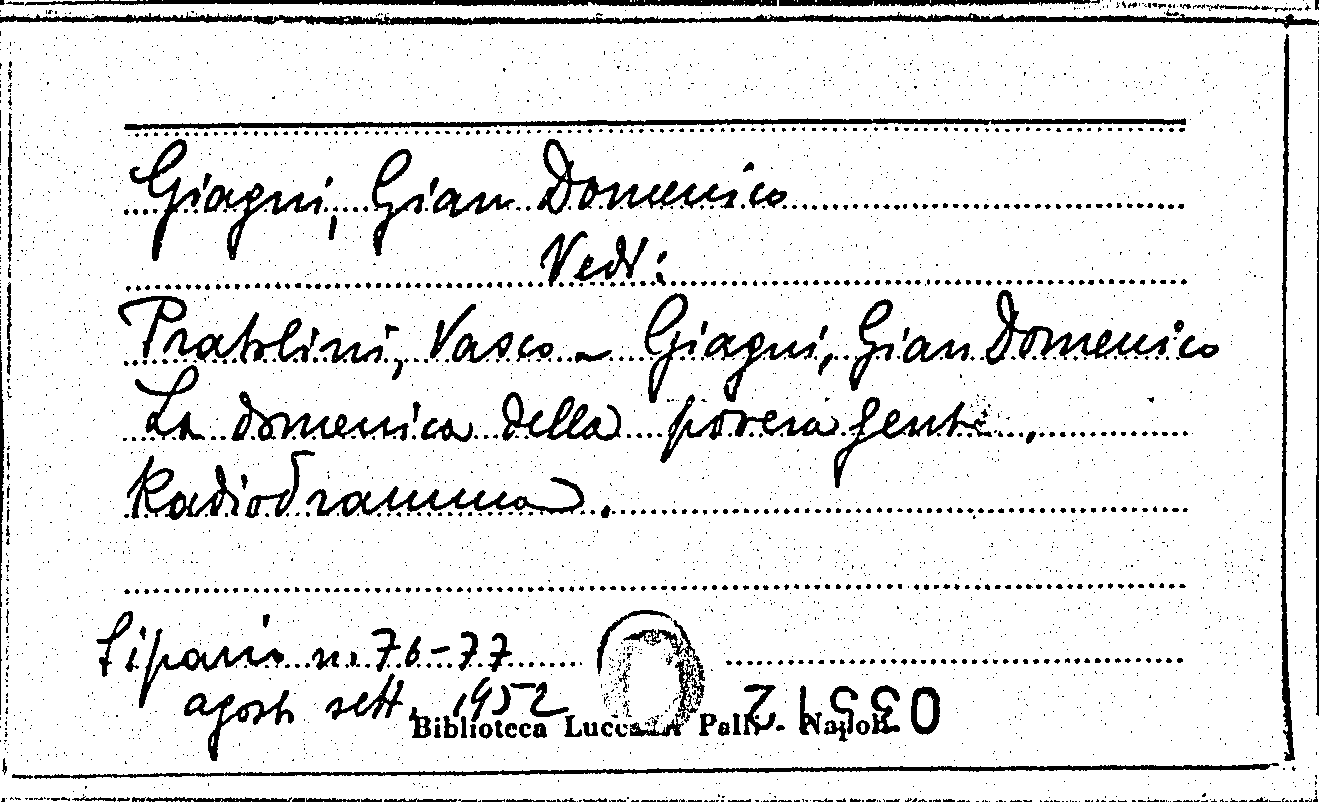 Giagni, Gian Domenico
Vedi:
Pratolini, Vasco - Giagni, Gian Domenico
La domenica della povera gente.
Radiodramma.
Sipario n. 76-77
agosto sett. 1952
Biblioteca Lucchesi Palli - Napoli